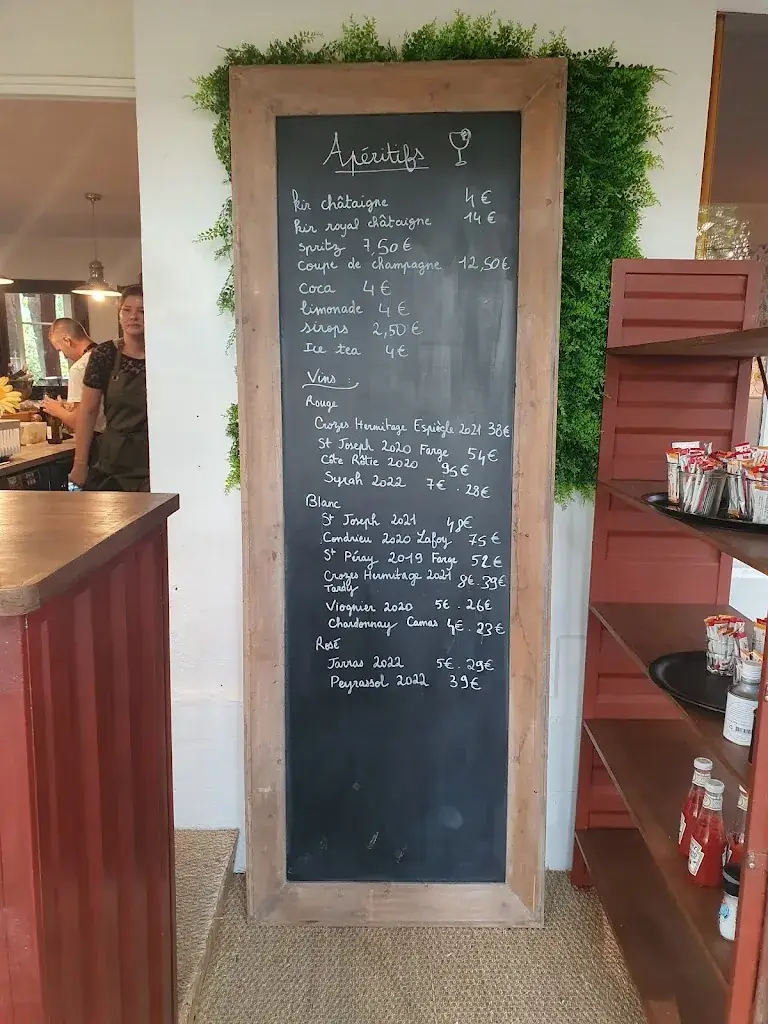 Apéritifs
kir châtaigne 4 €
kir royal châtaigne 14 €
spritz 7,50 €
coupe de champagne 12,50€
coca 4 €
limonade 4 €
sirops 2,50 €
Ice tea 4€
Vins :
Rouge
Crozes Hermitage Espiègle 2021 38€
St Joseph 2020 Farge 54€
Côte Rôtie 2020 95€
Syrah 2022 7€ . 28€
Blanc
St Joseph 2021 48€
Condrieu 2020 Lafoy 75€
St Péray 2019 Farge 52€
Crozes Hermitage 2021 8€ . 39€
Tardy
Viognier 2020 5€ . 26€
Chardonnay Camas 4€ . 23€
Rosé
Tarras 2022 5€ . 29€
Peyrassol 2022 39€